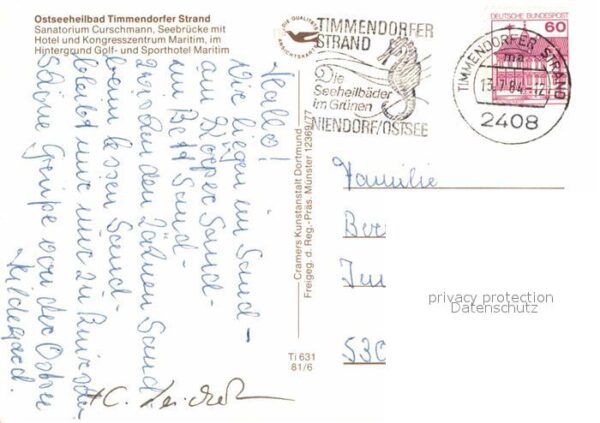 Ostseeheilbad Timmendorfer Strand
Sanatorium Curschmann, Seebrücke mit
Hotel und Kongresszentrum Maritim, im
Hintergrund Golf- und Sporthotel Maritim
DIE QUALITÄTS
ANSICHTSKARTE
TIMMENDORFER
STRAND
Die
Seeheilbäder
im Grünen
NIENDORF/OSTSEE
DEUTSCHE BUNDESPOST
60
TIMMENDORFER STRAND
ma
13.7.84-12
2408
Hallo!
Wir liegen im Sand -
am Körper Sand -
zwischen den Zähnen Sand.
im Bett Sand -
beim Essen Sand -
Schöne Grüße von der Ostsee
Hildegard.
Cramers Kunstanstalt Dortmund
Freigeg. d. Reg.-Präs. Münster 12369/77
Ti 631
81/6
Familie
530
privacy protection
Datenschutz